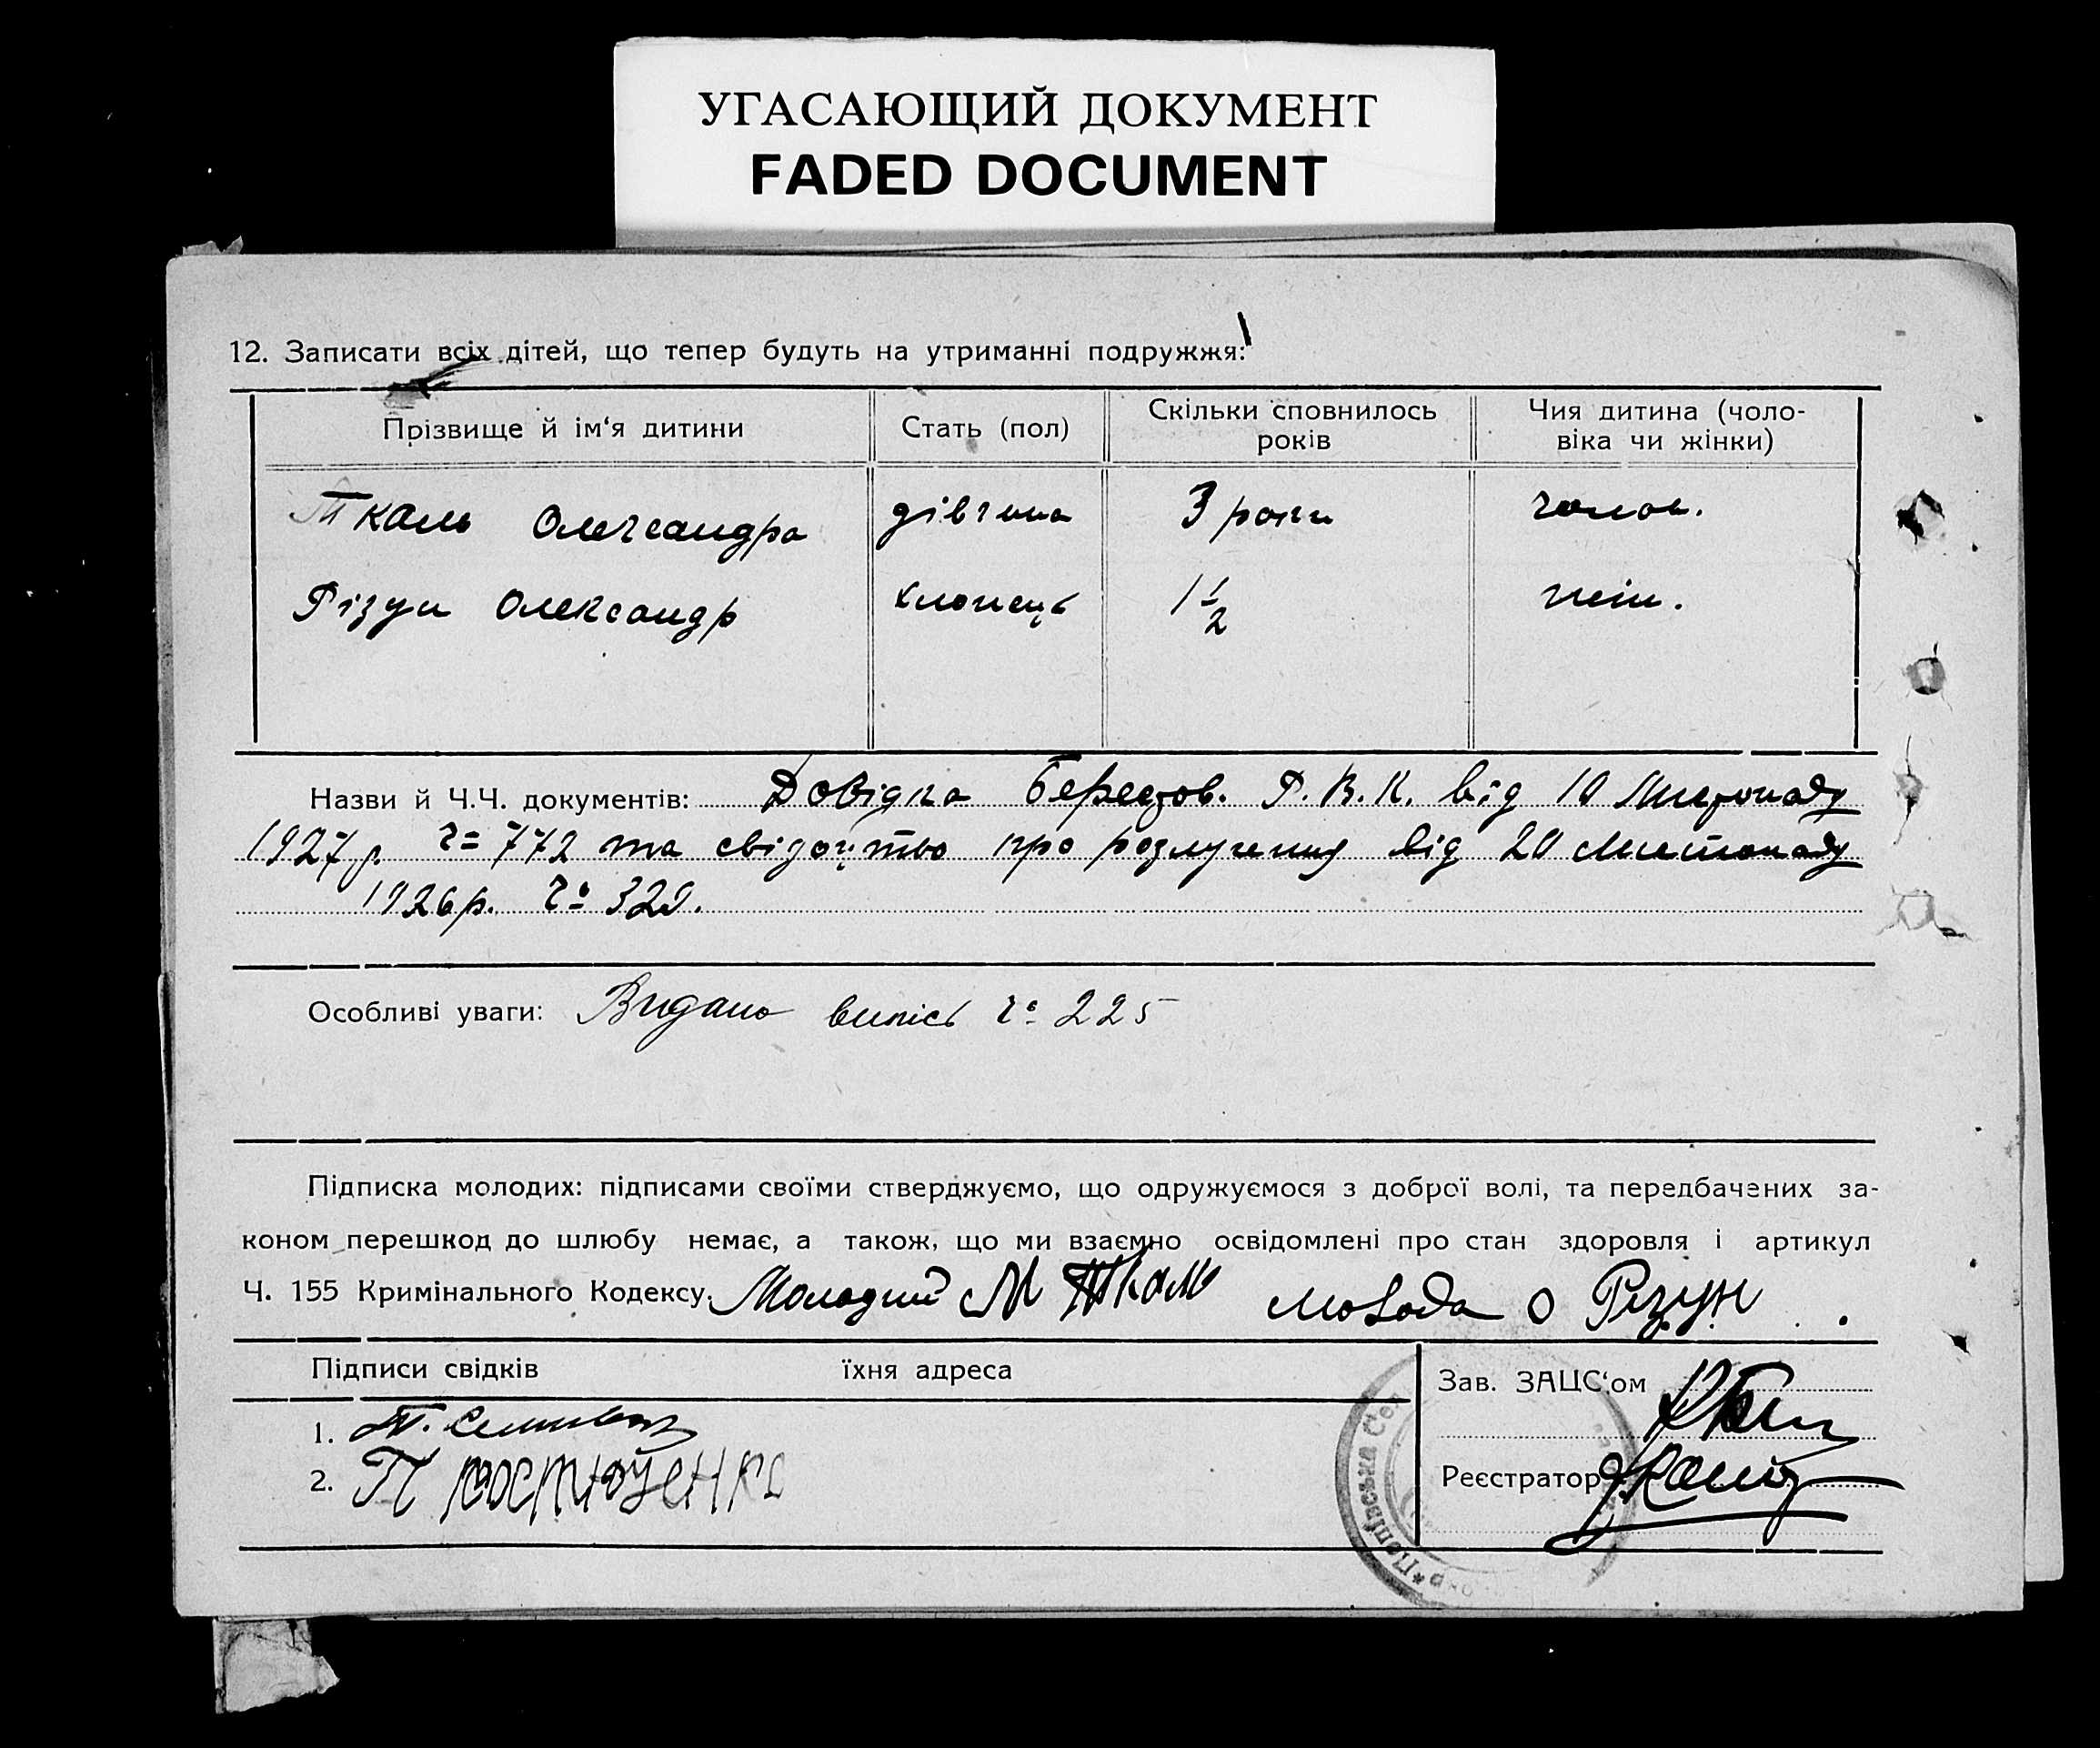 УГАСАЮЩИЙ ДОКУМЕНТ
FADED DOCUMENT
12. Записати всіх дітей, що тепер будуть на утриманні подружжя:
Прізвище й ім‘я дитини Стать (пол) Скільки сповнилось років Чия дитина (чоловіка чи жінки)
Ткаль Олександра дівчина 3 роки чолов.
Різун Олександр хлопець 1 1/2 жін.
Назви й Ч.Ч. документів: Довідка Берестов. Р.В.К. від 10 Листопаду
1927 р. ч= 772 та свідоцтво про розлучення від 20 Листопаду
1926 р. ч=
Особливі уваги: Видано випісь ч= 225
Підписка молодих: підписами своїми стверджуємо, що одружуємося з доброї волі, та передбачених за-
коном перешкод до шлюбу немає, а також, що ми взаємно освідомлені про стан здоровля і артикул
Ч. 155 Кримінального Кодексу. Молодий М Ткаль молода О Різун
Підписи свідків їхня адреса
Зав. ЗАЦС‘ом
1. Т.
2. П
Реєстратор
*Попівська Сел